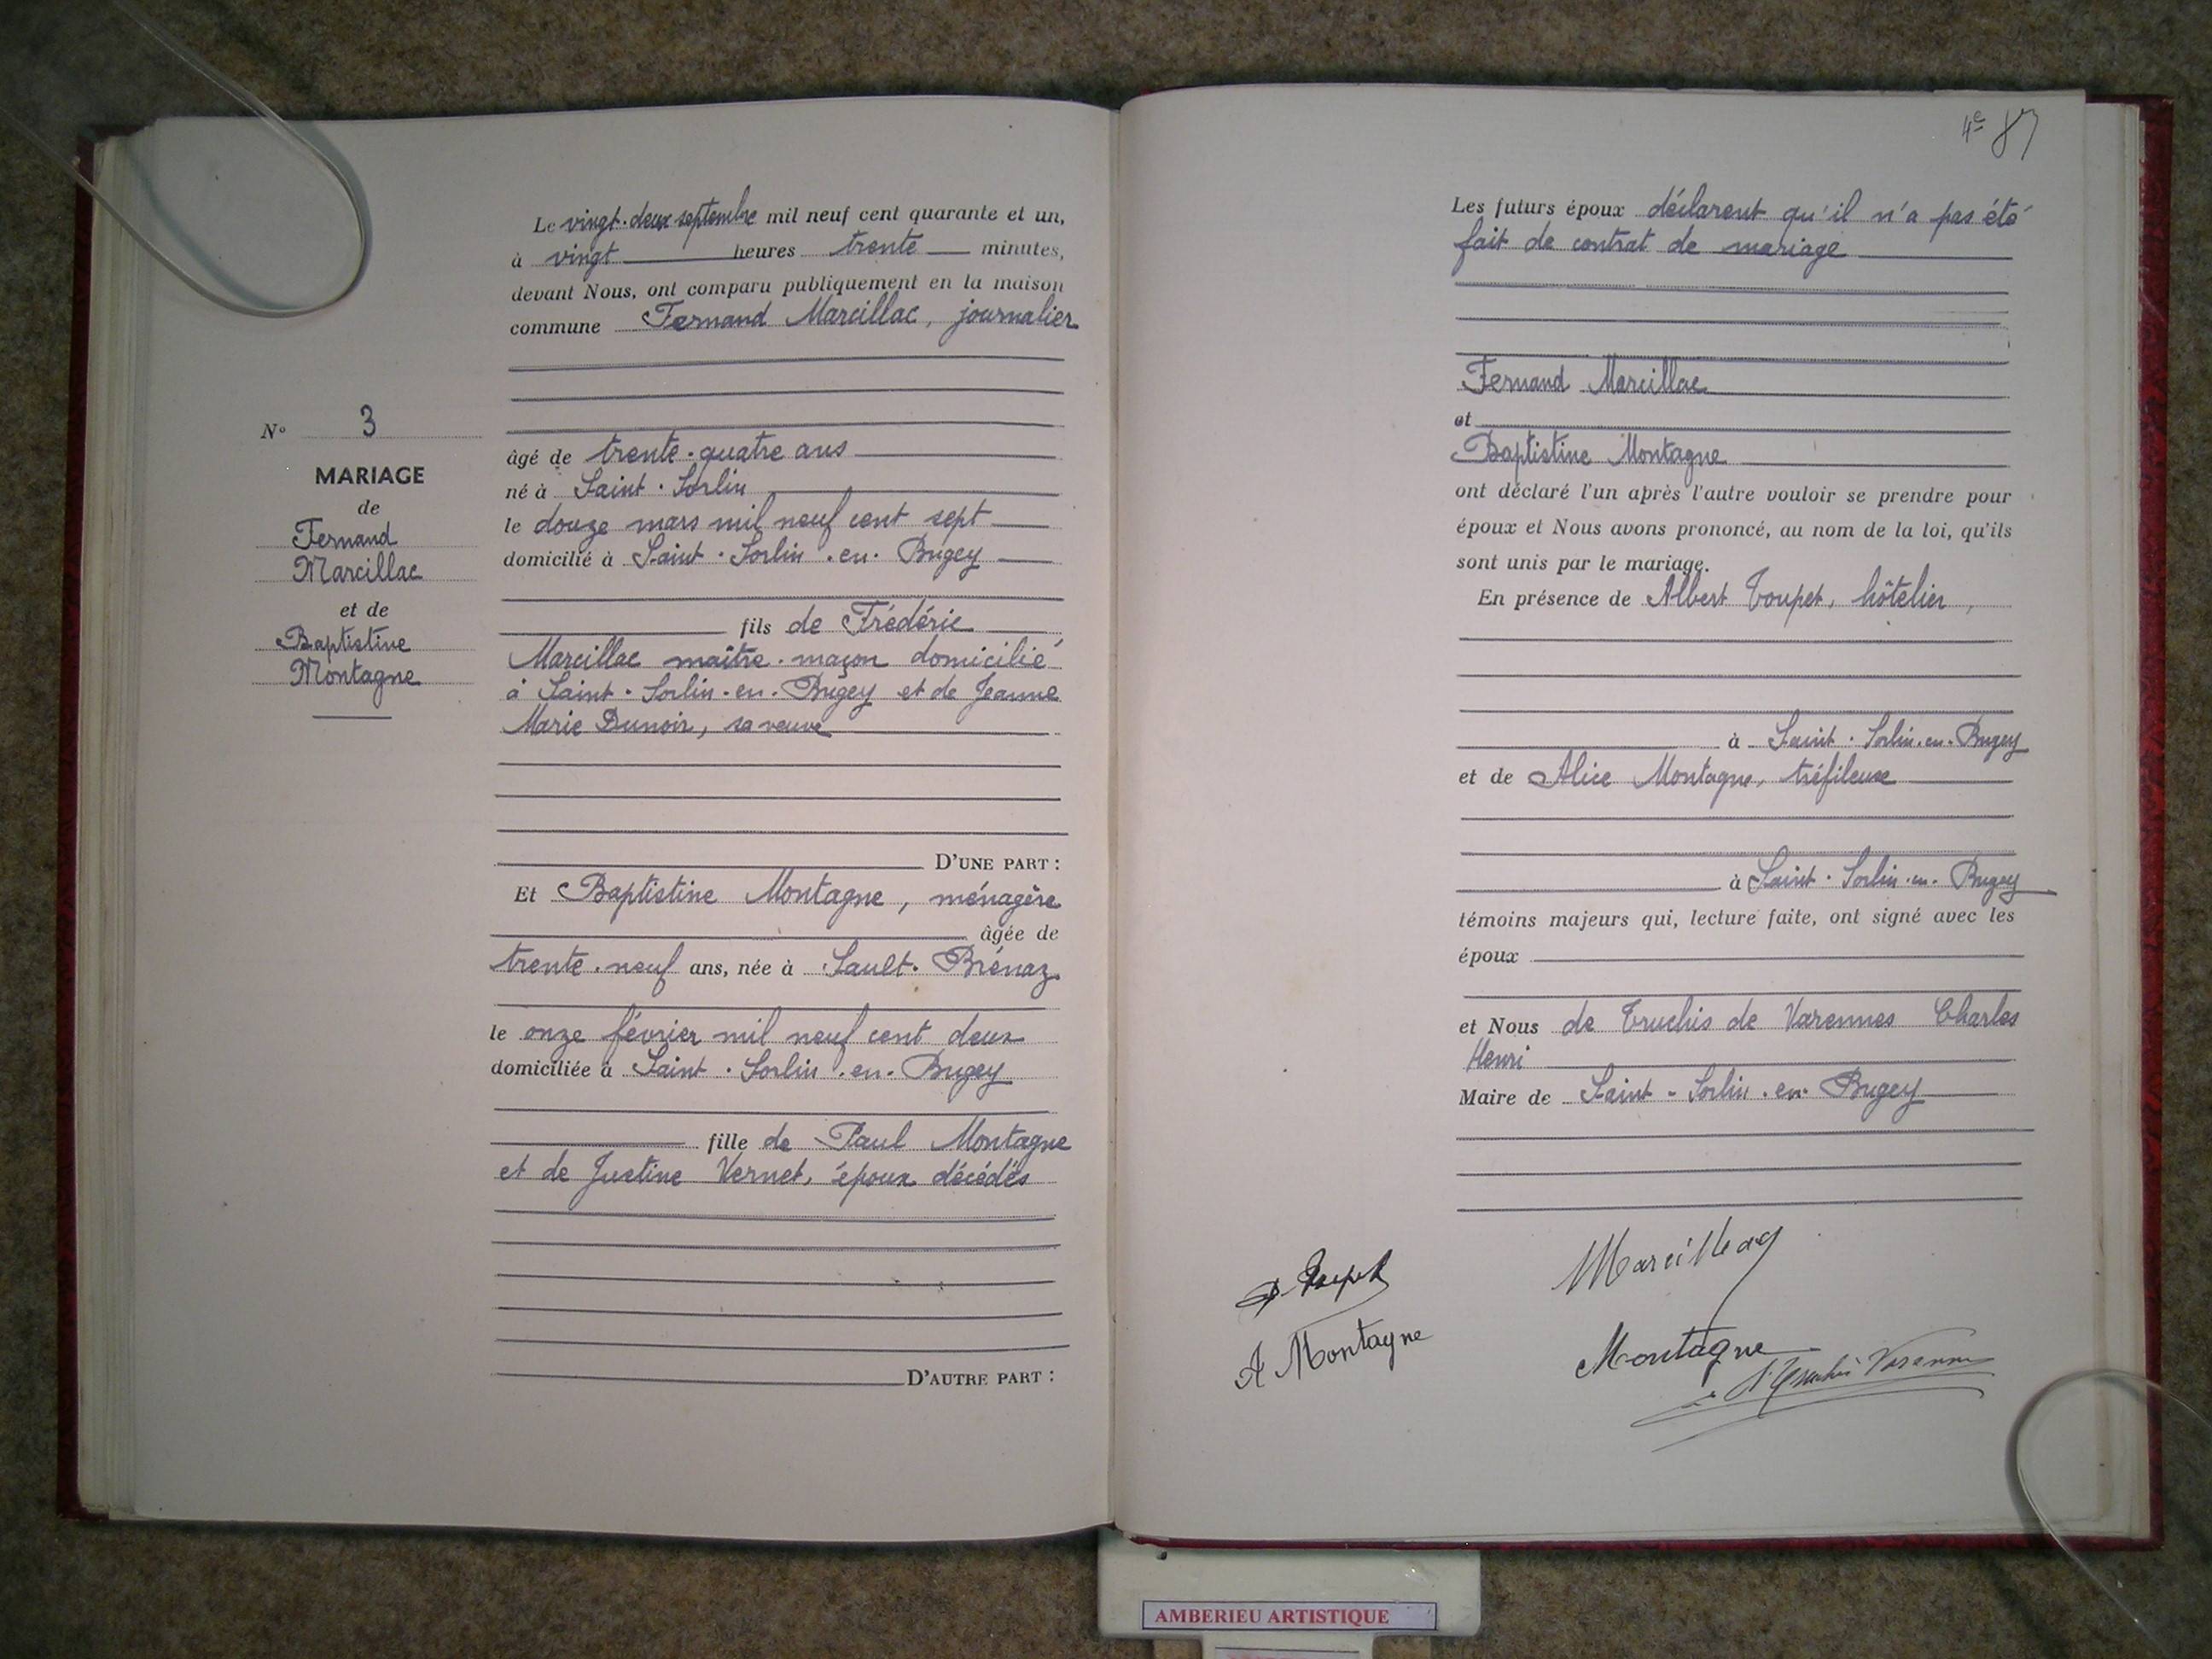 N° 3
MARIAGE
de
Fernand
Marcillac
et de
Baptistine
Montagne
Le vingt-deux septembre mil neuf cent quarante et un,
à vingt heures trente minutes,
devant Nous, ont comparu publiquement en la maison
commune Fernand Marcillac, journalier
âgé de trente-quatre ans
né à Saint-Sorlin
le douze mars mil neuf cent sept
domicilié à Saint-Sorlin-en-Bugey
fils de Frédéric
Marcillac maître-maçon domicilié
à Saint-Sorlin-en-Bugey et de Jeanne
Marie Dunoir, sa veuve
D'UNE PART :
Et Baptistine Montagne, ménagère
âgée de
trente-neuf ans, née à Sault-Brénaz
le onze février mil neuf cent deux
domiciliée à Saint-Sorlin-en-Bugey
fille de Paul Montagne
et de Justine Vernet, époux décédés
D'AUTRE PART :
4e 87
Les futurs époux déclarent qu'il n'a pas été
fait de contrat de mariage
Fernand Marcillac
et
Baptistine Montagne
ont déclaré l'un après l'autre vouloir se prendre pour
époux et Nous avons prononcé, au nom de la loi, qu'ils
sont unis par le mariage.
En présence de Albert Toupet, hôtelier,
à Saint-Sorlin-en-Bugey
et de Alice Montagne, tréfileuse
à Saint-Sorlin-en-Bugey
témoins majeurs qui, lecture faite, ont signé avec les
époux
et Nous de Truchis de Varennes Charles
Henri
Maire de Saint-Sorlin-en-Bugey
Marcillac
A Montagne
Montagne
AMBERIEU ARTISTIQUE